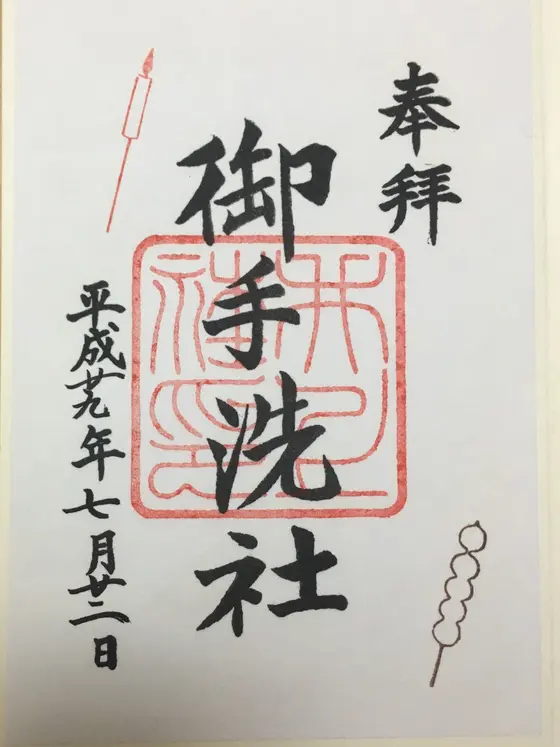 奉拝
御手洗社
平成廿九年七月廿二日